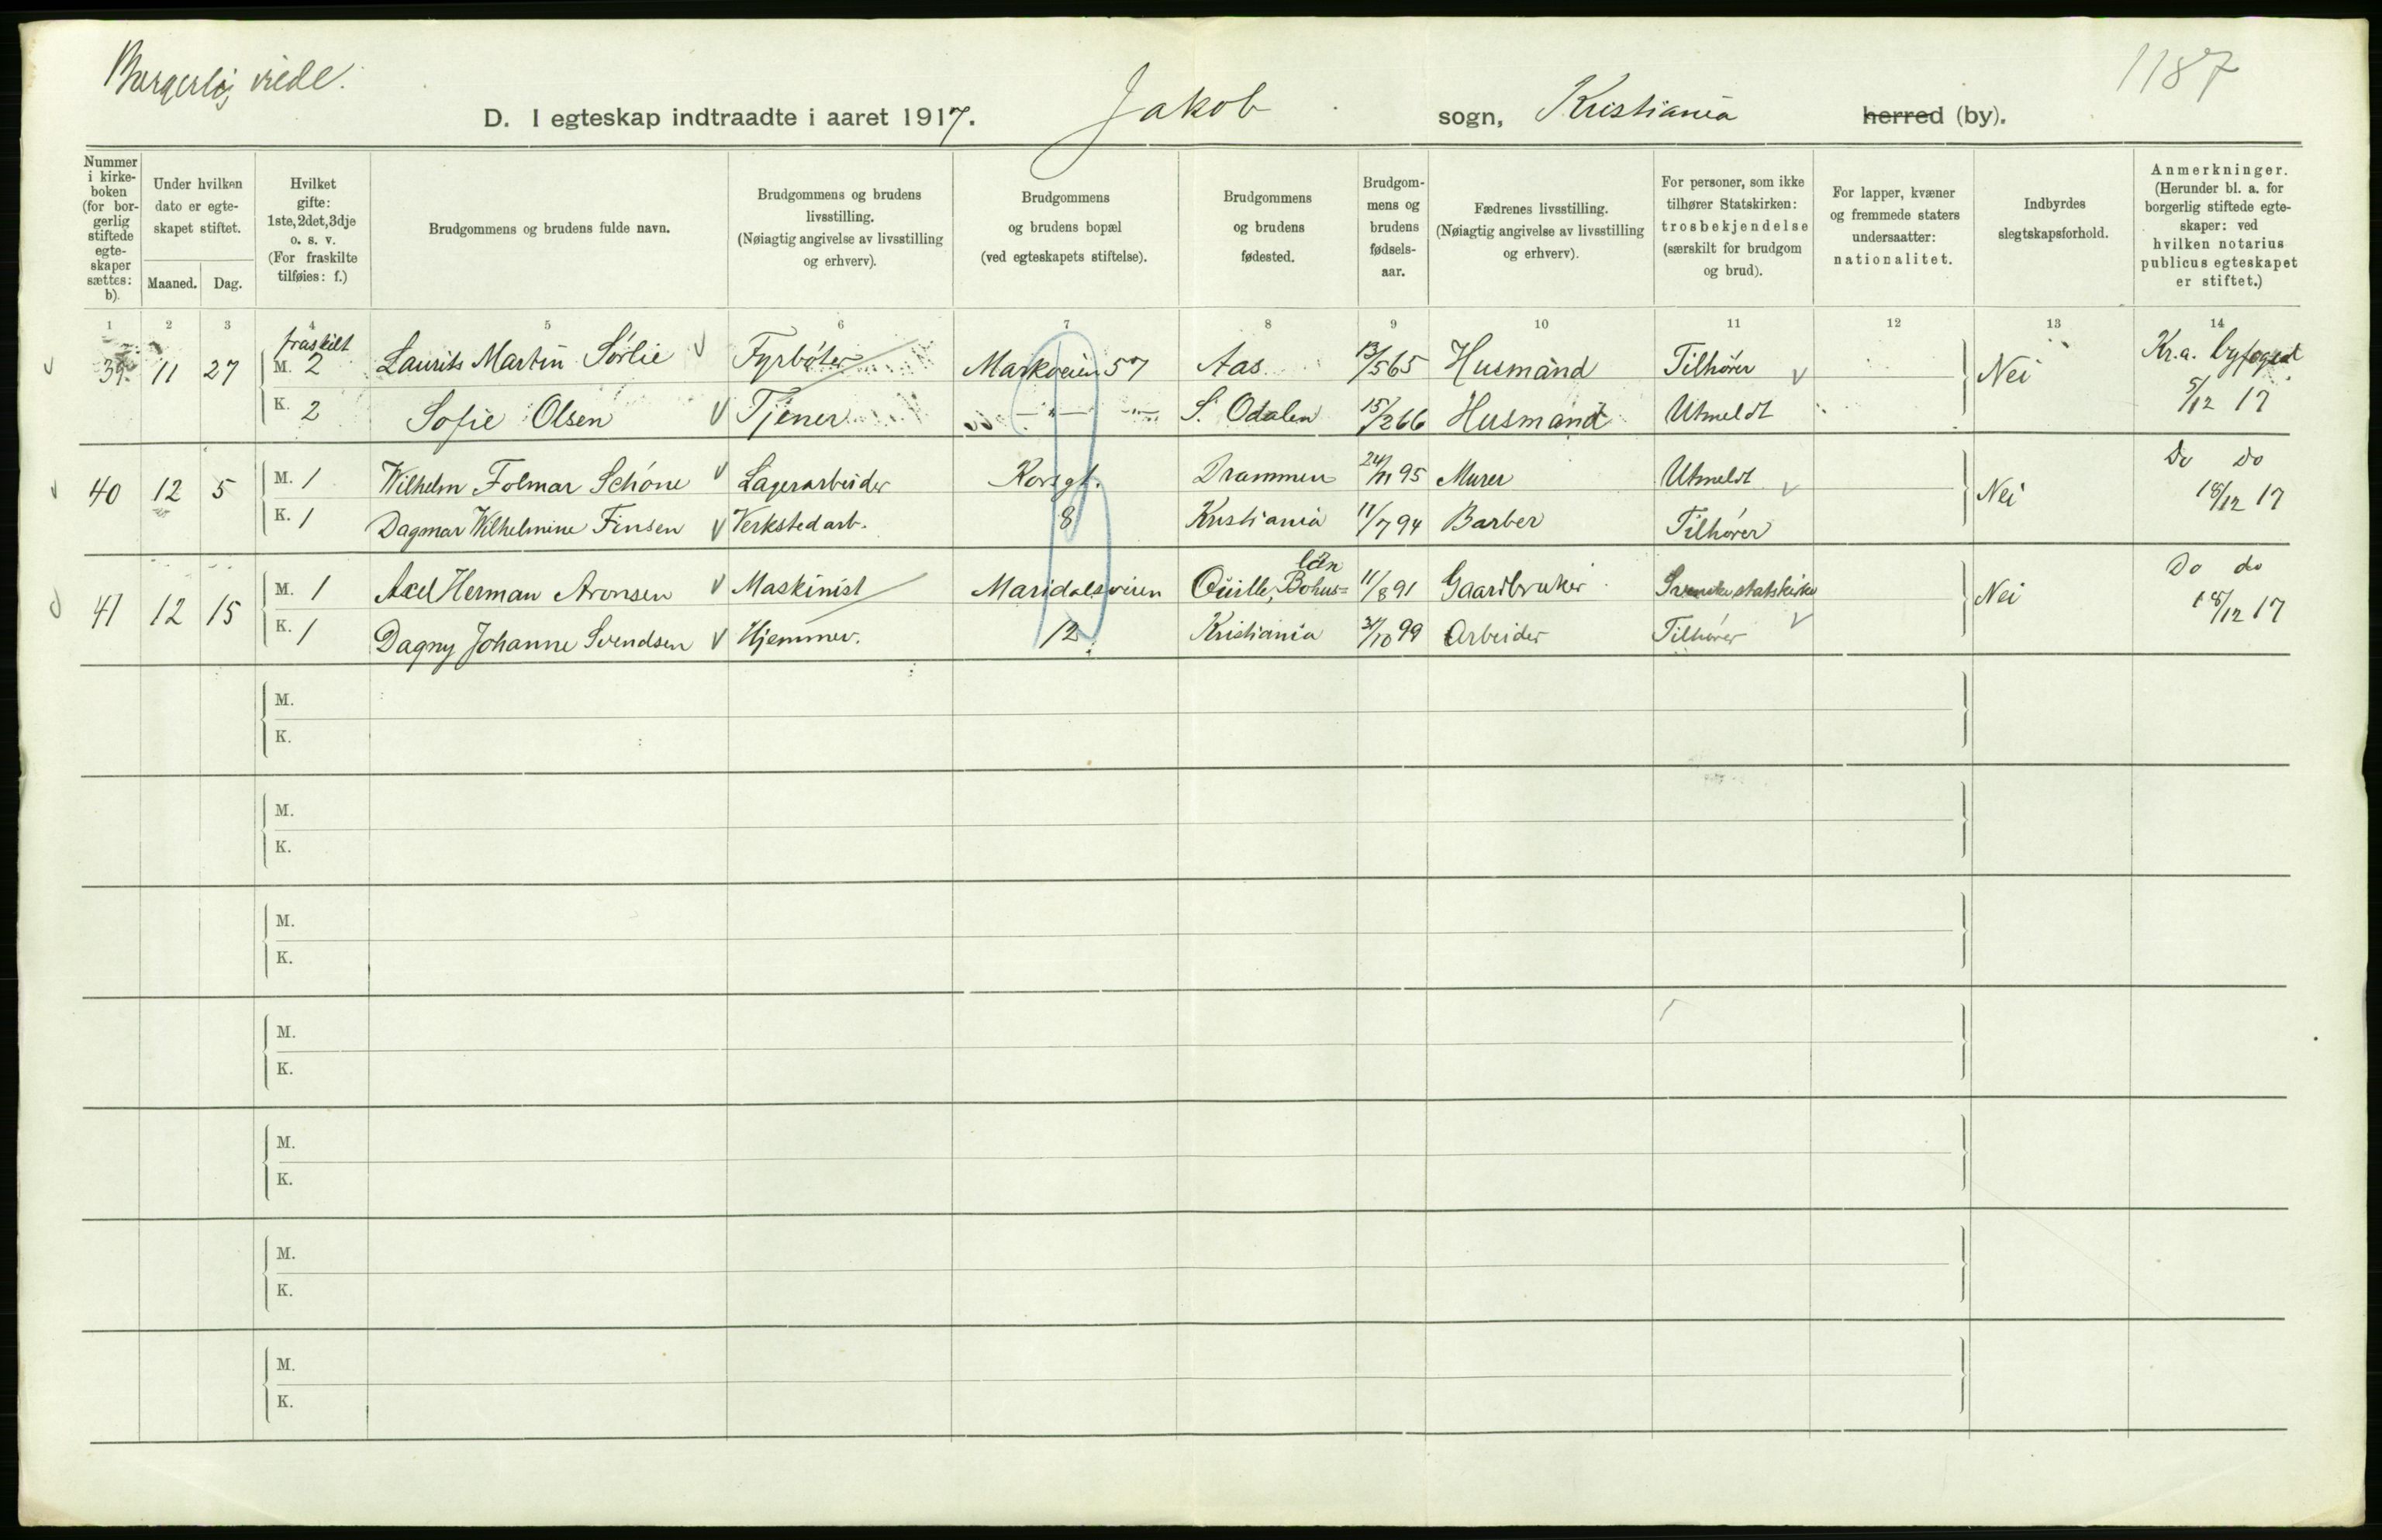 Borgerlig viede.
1187
D. I egteskap indtraadte i aaret 1917. Jakob sogn, Kristiania herred (by).
Nummer i kirkeboken (for borgerlig stiftede egteskaper sættes: b).
Under hvilken dato er egteskapet stiftet.
Maaned. Dag.
Hvilket gifte: 1ste, 2det, 3dje o. s. v. (For fraskilte tilføies: f.)
Brudgommens og brudens fulde navn.
Brudgommens og brudens livsstilling. (Nøiagtig angivelse av livsstilling og erhverv).
Brudgommens og brudens bopæl (ved egteskapets stiftelse).
Brudgommens og brudens fødested.
Brudgommens og brudens fødselsaar.
Fædrenes livsstilling. (Nøiagtig angivelse av livsstilling og erhverv).
For personer, som ikke tilhører Statskirken: trosbekjendelse (særskilt for brudgom og brud).
For lapper, kvæner og fremmede staters undersaatter: nationalitet.
Indbyrdes slegtskapsforhold.
Anmerkninger. (Herunder bl. a. for borgerlig stiftede egteskaper: ved hvilken notarius publicus egteskapet er stiftet.)
1 2 3 4 5 6 7 8 9 10 11 12 13 14
39 11 27 fraskilt M. 2 Laurits Martin Sørlie Fyrbøter Markveien 57 Aas 13/5 65 Husmand Tilhører Nei Kr.a. byfoged
K. 2 Sofie Olsen Tjener —"— —"— S. Odalen 15/2 66 Husmand Utmeldt 5/12 17
40 12 5 M. 1 Wilhelm Folmar Schöne Lagerarbeider Korsgt. Drammen 24/11 95 Murer Utmeldt Nei Do Do
K. 1 Dagmar Wilhelmine Finsen Verkstedarb. 8 Kristiania 11/7 94 Barber Tilhører 18/12 17
41 12 15 M. 1 Axel Herman Aronsen Maskinist Maridalsveien Quille, Bohus= län 11/8 91 Gaardbruker Svenske statskirke Nei Do do
K. 1 Dagny Johanne Svendsen Hjemmev. 12. Kristiania 31/10 99 Arbeider Tilhører 18/12 17
M.
K.
M.
K.
M.
K.
M.
K.
M.
K.
M.
K.
M.
K.